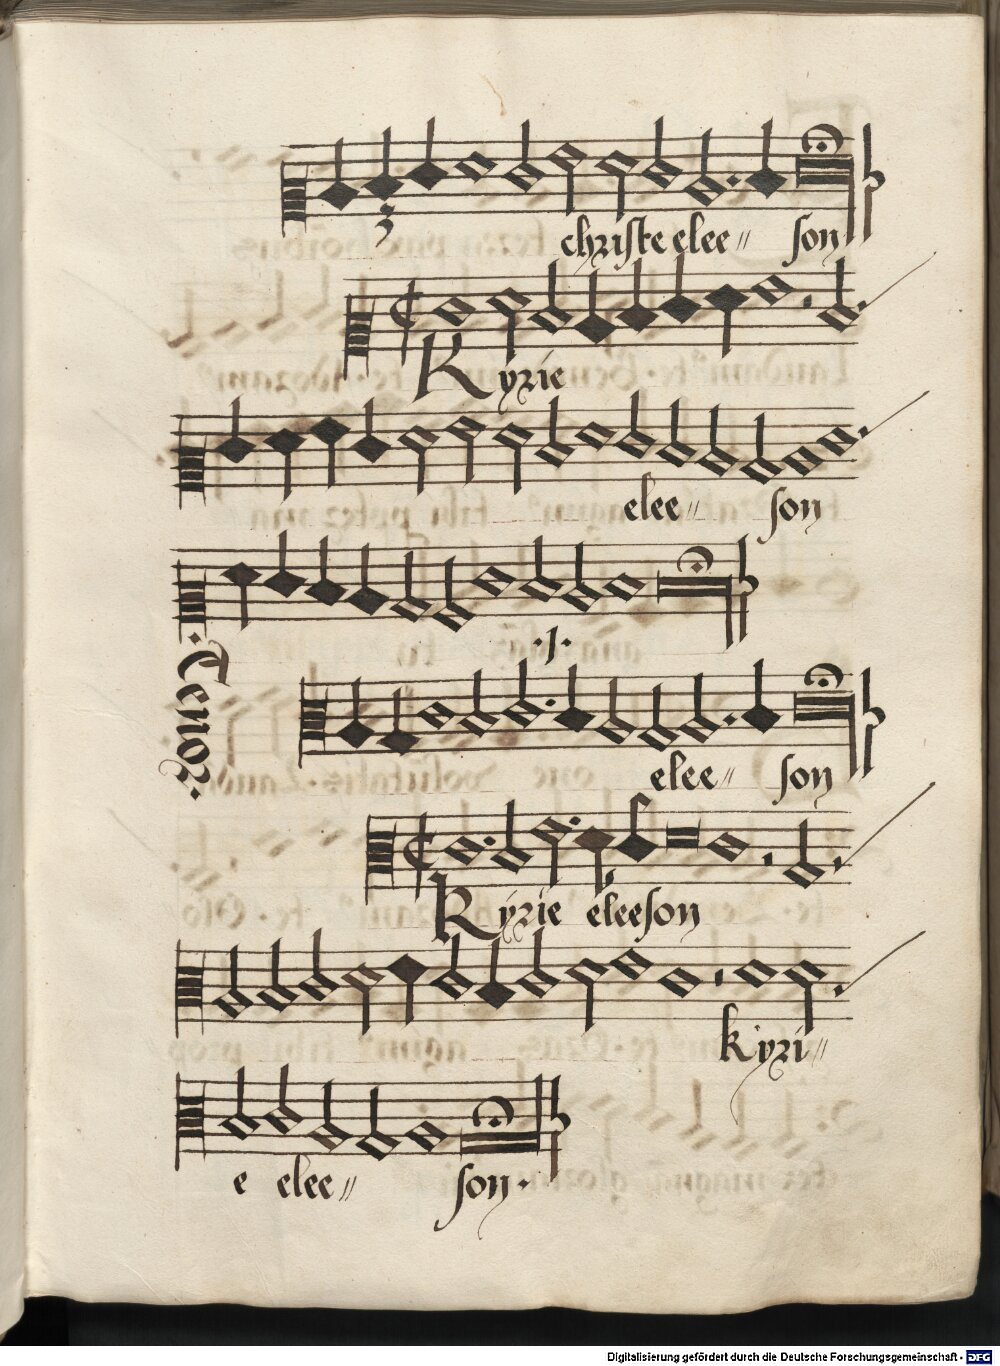 3
christe elee〃 son
Kyrie
elee〃 son
·Tenor·
·j·
elee〃 son
Kyrie eleeson
kyri〃
e elee〃 son·
Digitalisierung gefördert durch die Deutsche Forschungsgemeinschaft - DFG